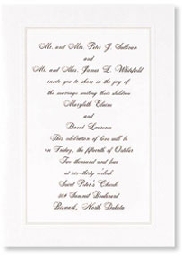 Mr. and Mrs. Peter J. Sullivan
and
Mr. and Mrs. James L. Whitfield
invite you to share in the joy of
the marriage uniting their children
Marybeth Elaine
and
Daniel
This celebration of love will be
on Friday, the fifteenth of October
Two thousand and
at six-thirty o'clock
Saint Peter's Church
Boulevard
Bismarck, North Dakota